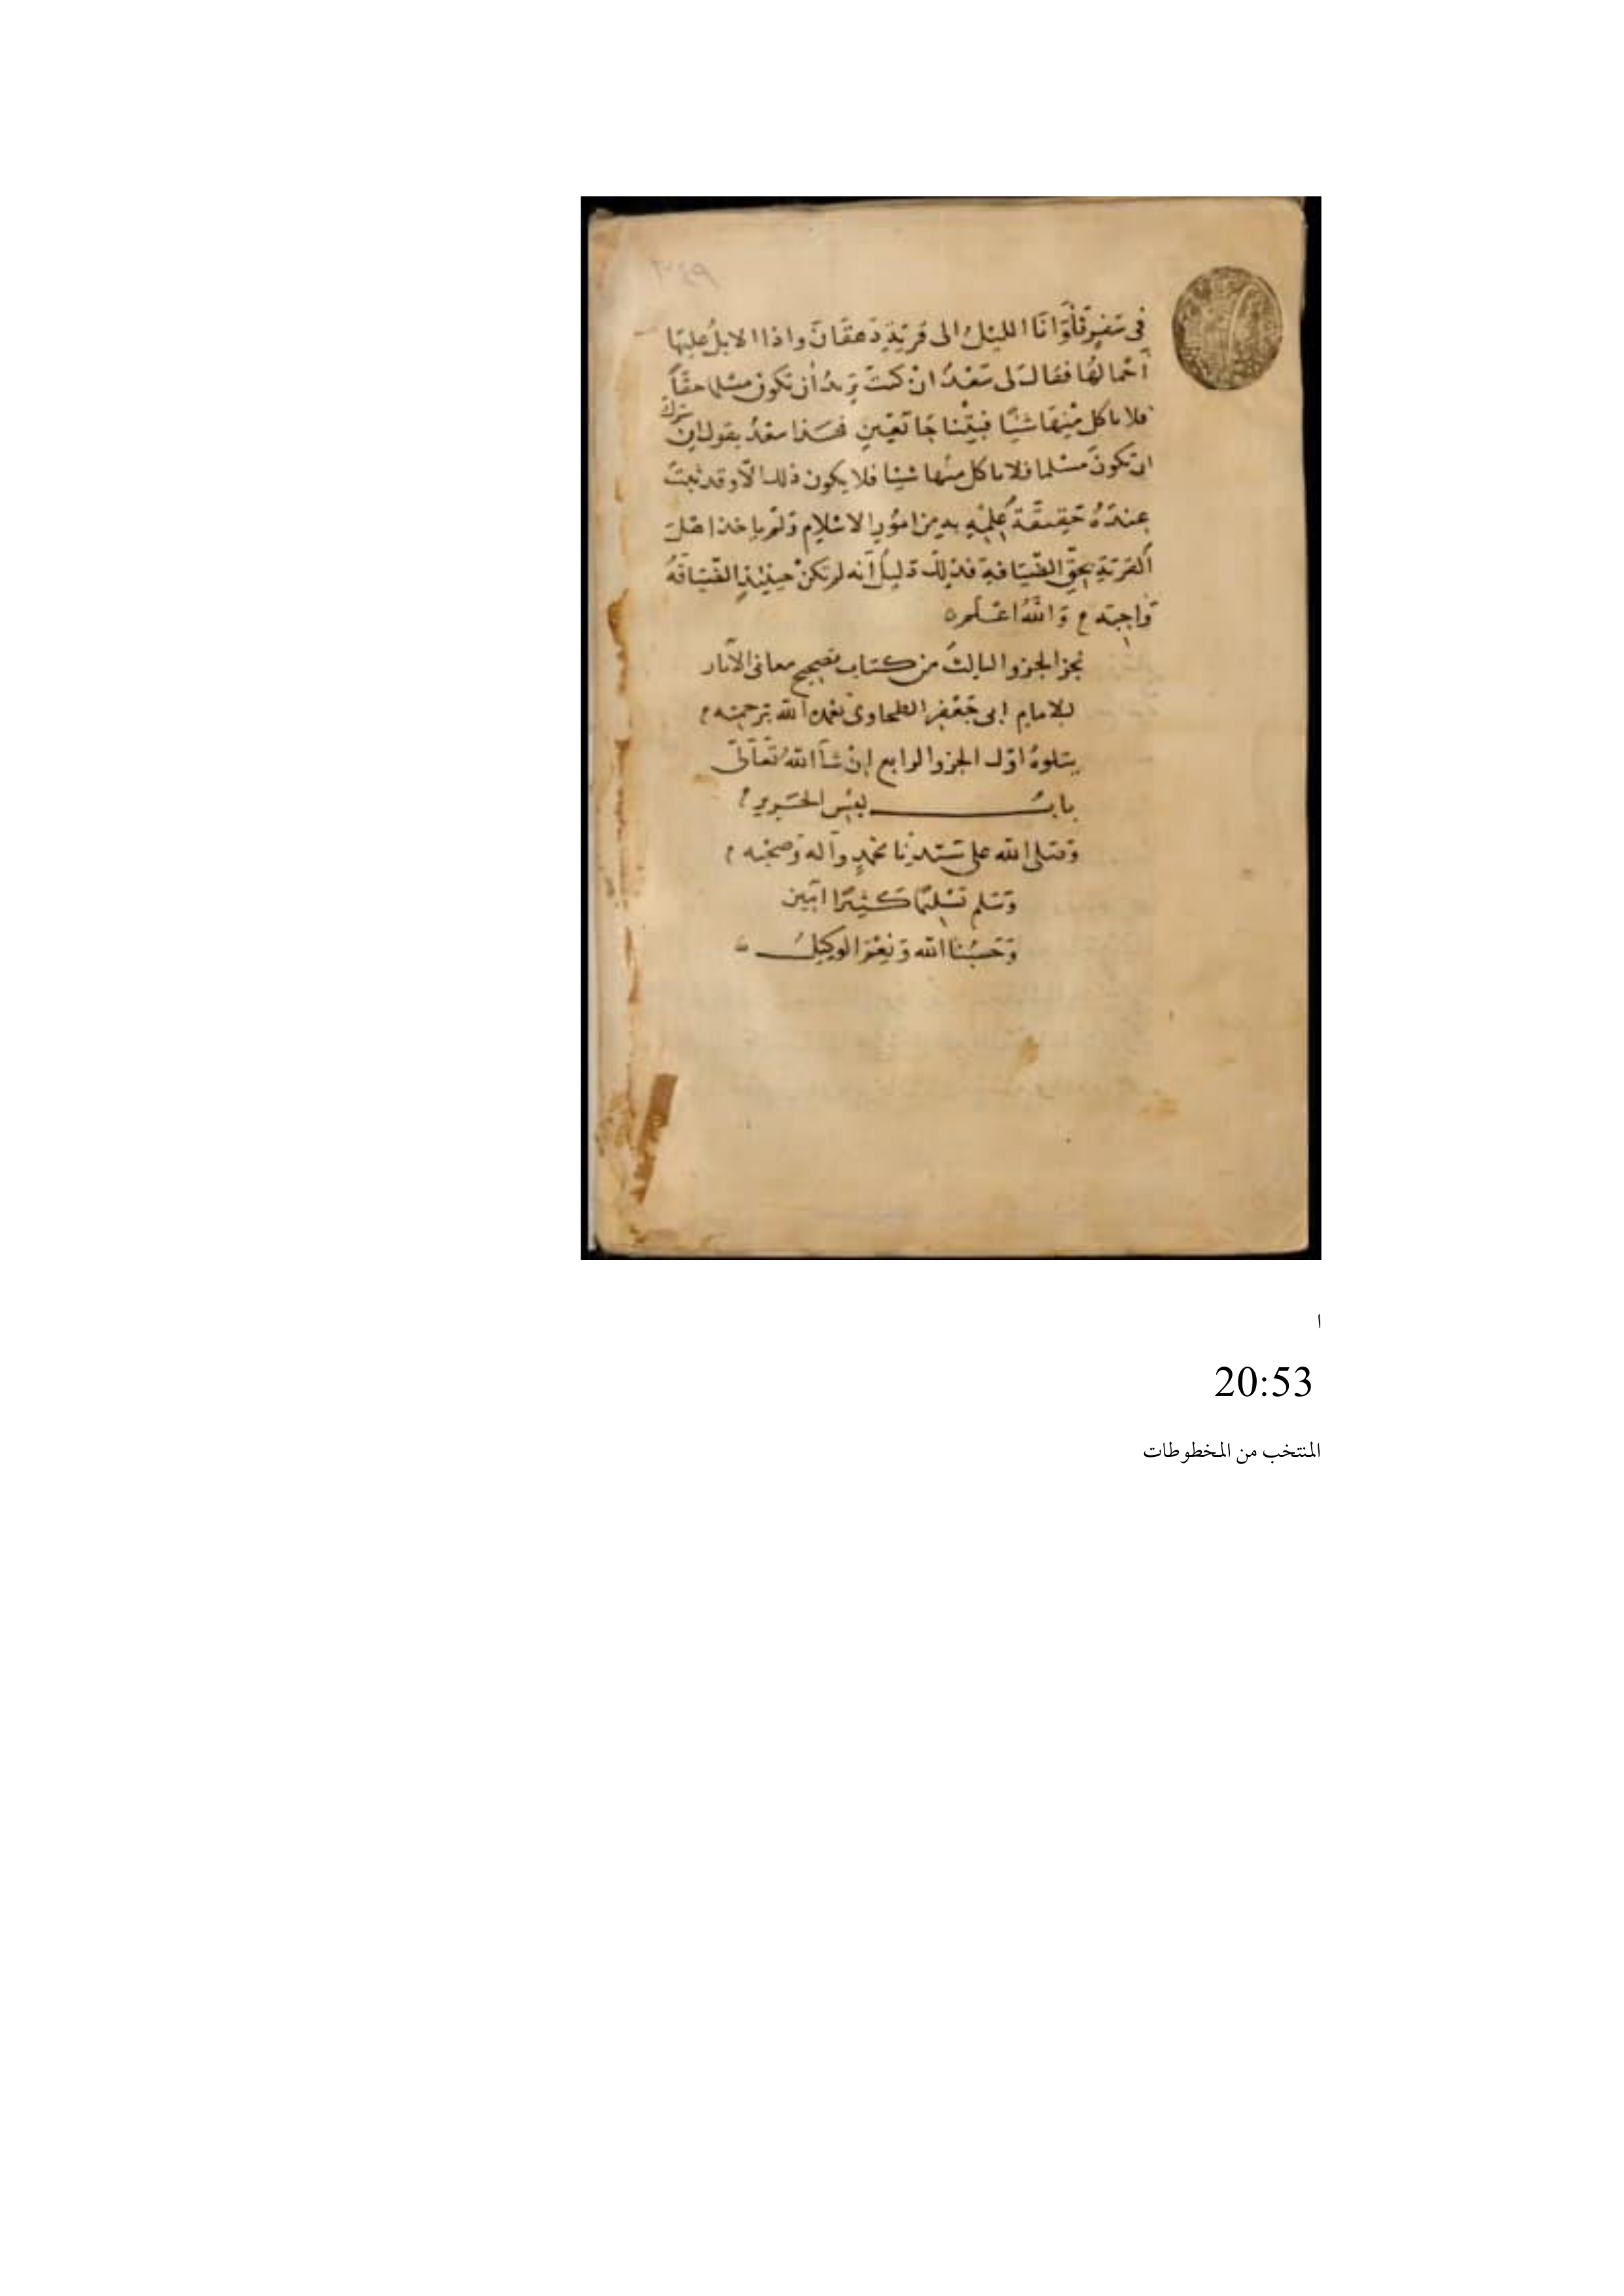 في سفر فآوانا الليل الى قرية دهقان واذا الابل عليها
أحمالها فقال لى سعد ان كنت تريد أن تكون مسلما حقا
فلا تاكل منها شيئا فبتنا جائعين فهذا سعد يقول ان سرك
ان تكون مسلما فلا تاكل منها شيئا فلا يكون ذلك الا وقد ثبت
عنده حقيقة علمه به من امور الاسلام ولم ياخذ اهل
القرية بحق الضيافة فذلك دليل أنه لم تكن حينئذ الضيافة
واجبة والله اعلم
نجز الجزو الثالث من كتاب تصحيح معاني الآثار
للامام ابى جعفر الطحاوى تغمده الله برحمته
يتلوه اول الجزو الرابع إن شآ الله تعالى
باب لبس الحرير
وصلى الله على سيدنا محمد وآله وصحبه
وسلم تسليما كثيرا آمين
وحسبنا الله ونعم الوكيل
ا
20:53
المنتخب من المخطوطات